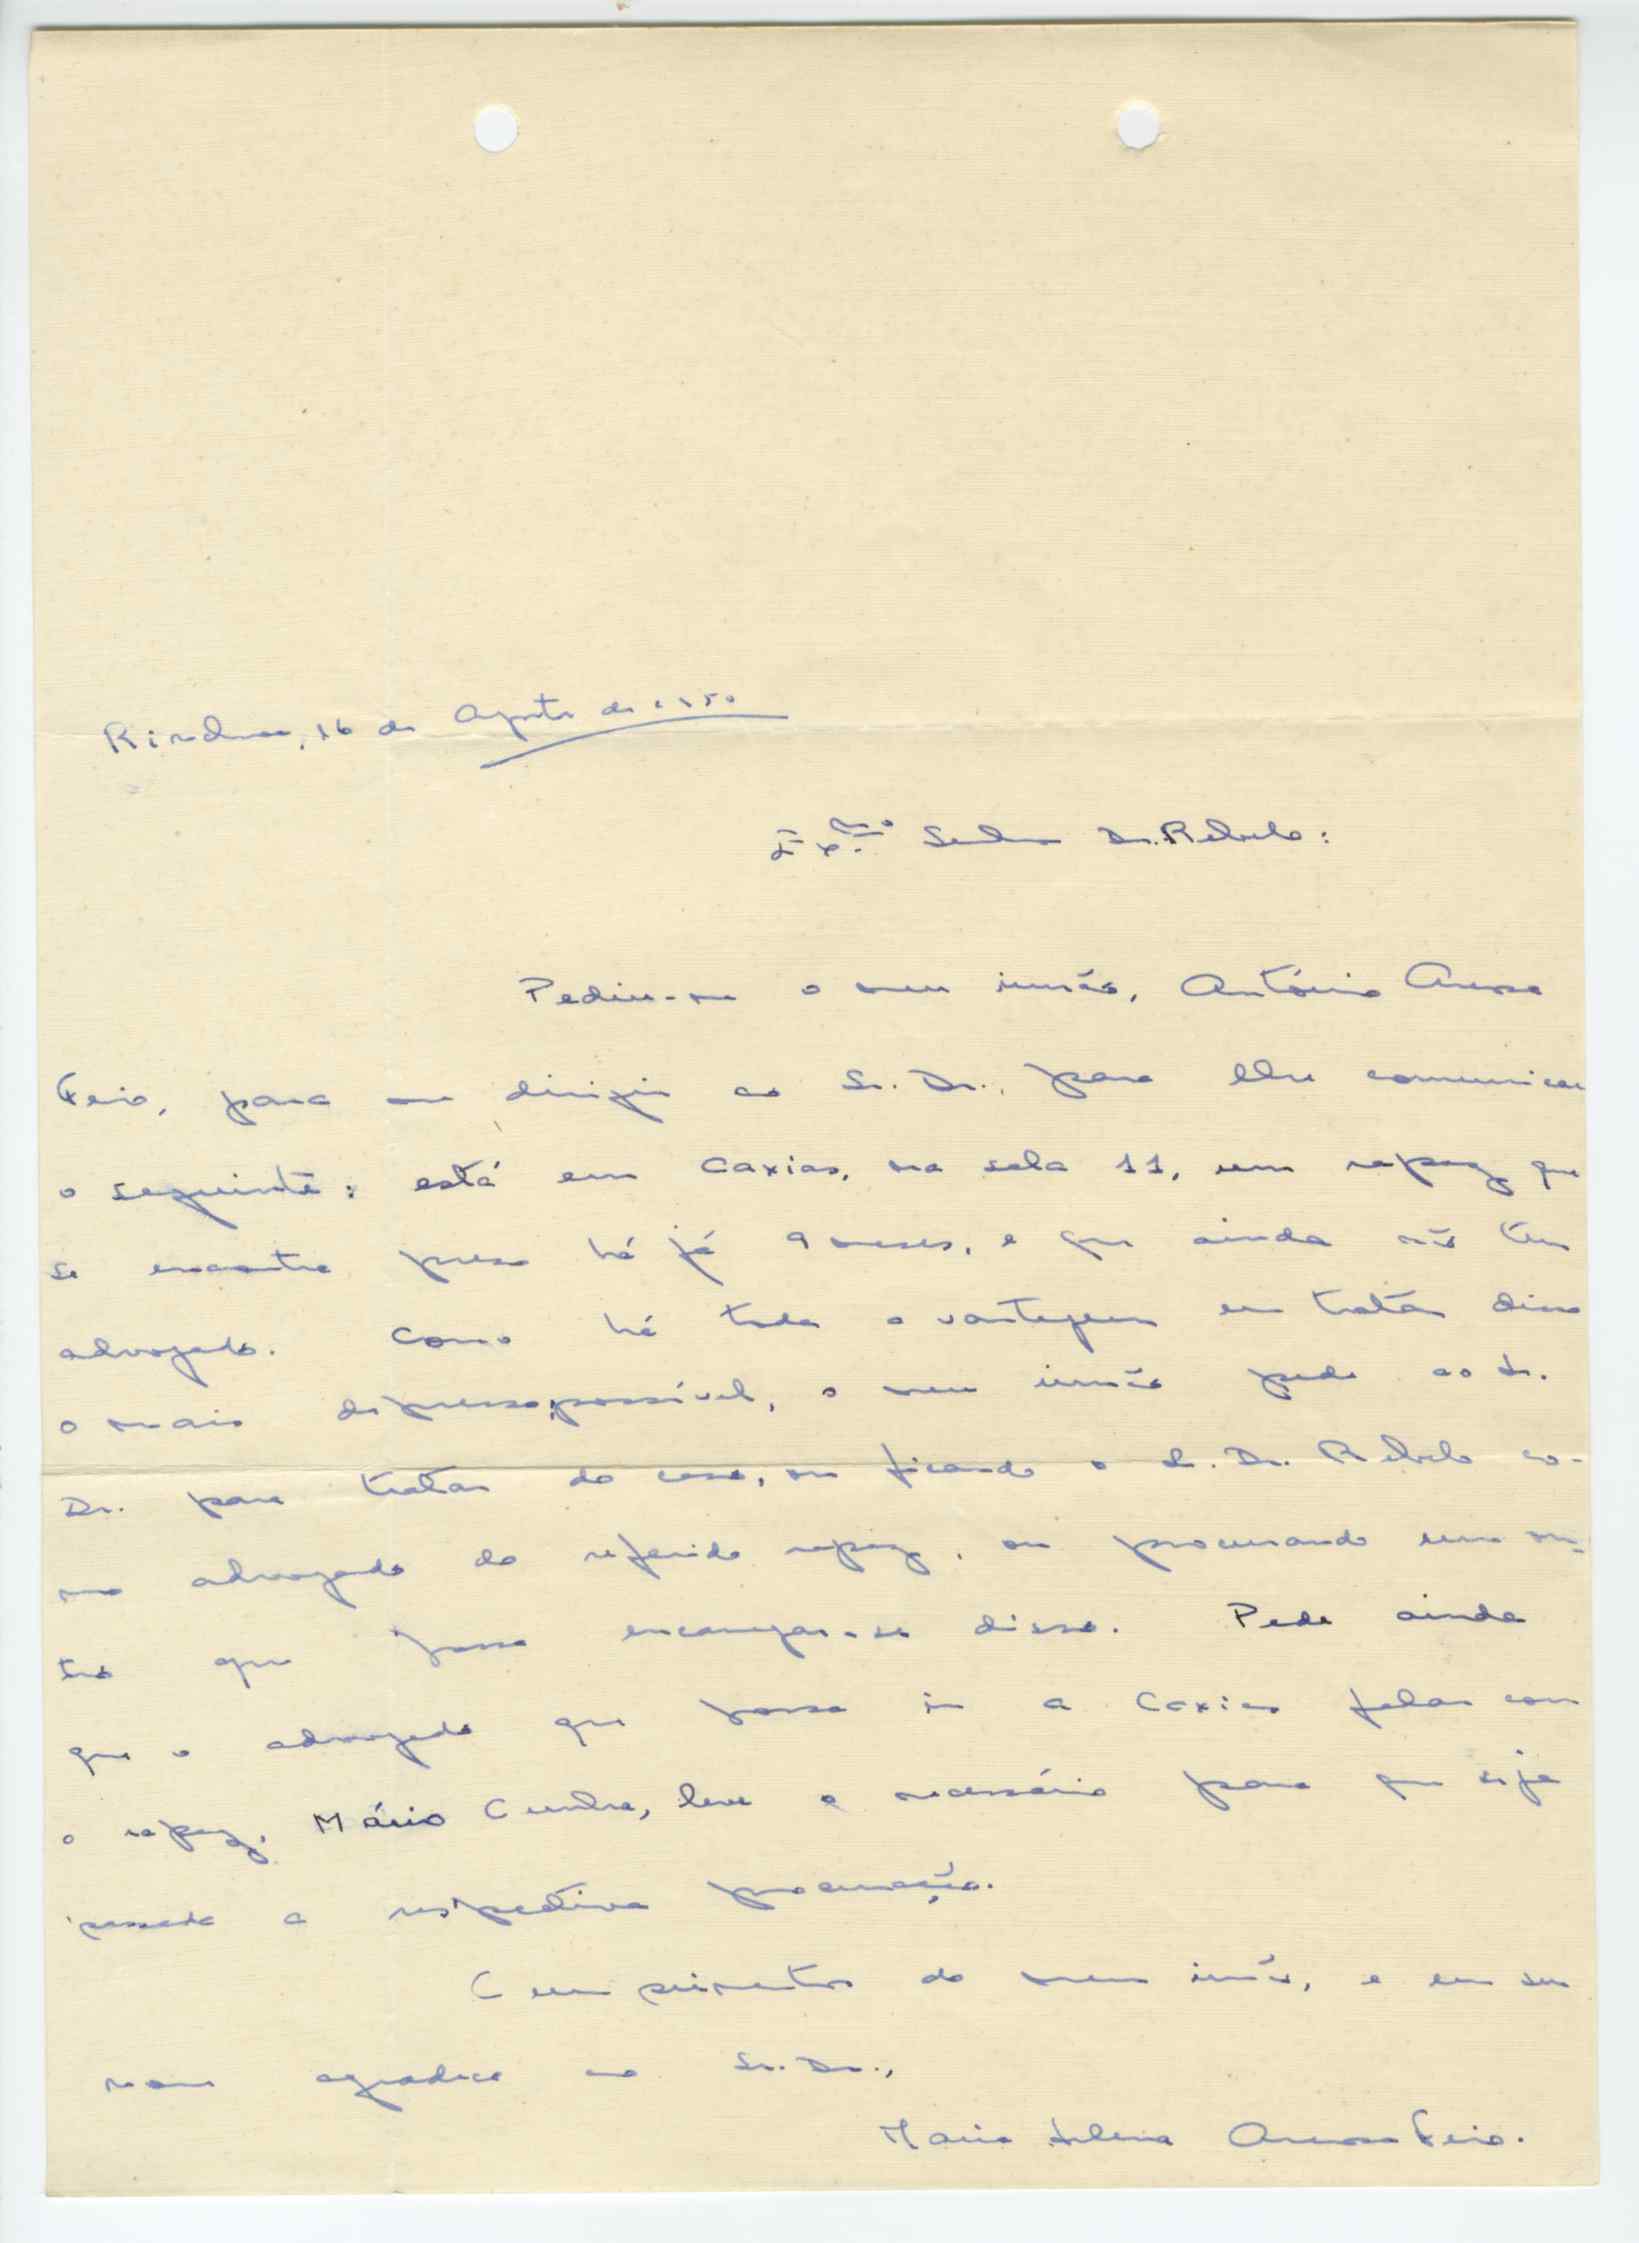 16 de Agosto de 1950
Ex.mo Senhor Dr. Rebelo:
Pediu-me o meu irmão, António Arosa
Feio, para me dirigir ao Sr. Dr., para lhe comunicar
o seguinte: está em Caxias, na sala 11, um rapaz que
se encontra preso há já 9 meses, e que ainda não tem
advogado. Como há toda a vantagem em tratar disso
o mais depressa possível, o meu irmão pede ao Sr.
Dr. para tratar do caso, ou ficando o Sr. Dr. Rebelo co-
mo advogado do referido rapaz, ou procurando um ou-
tro que possa encarregar-se disso. Pede ainda
que o advogado que possa ir a Caxias falar com
o rapaz, Mário Cunha, leve o necessário para que seja
passada a respectiva procuração.
Cumprimentos do meu irmão, e em seu
nome agradece ao Sr. Dr.,
Maria Helena Arosa Feio.